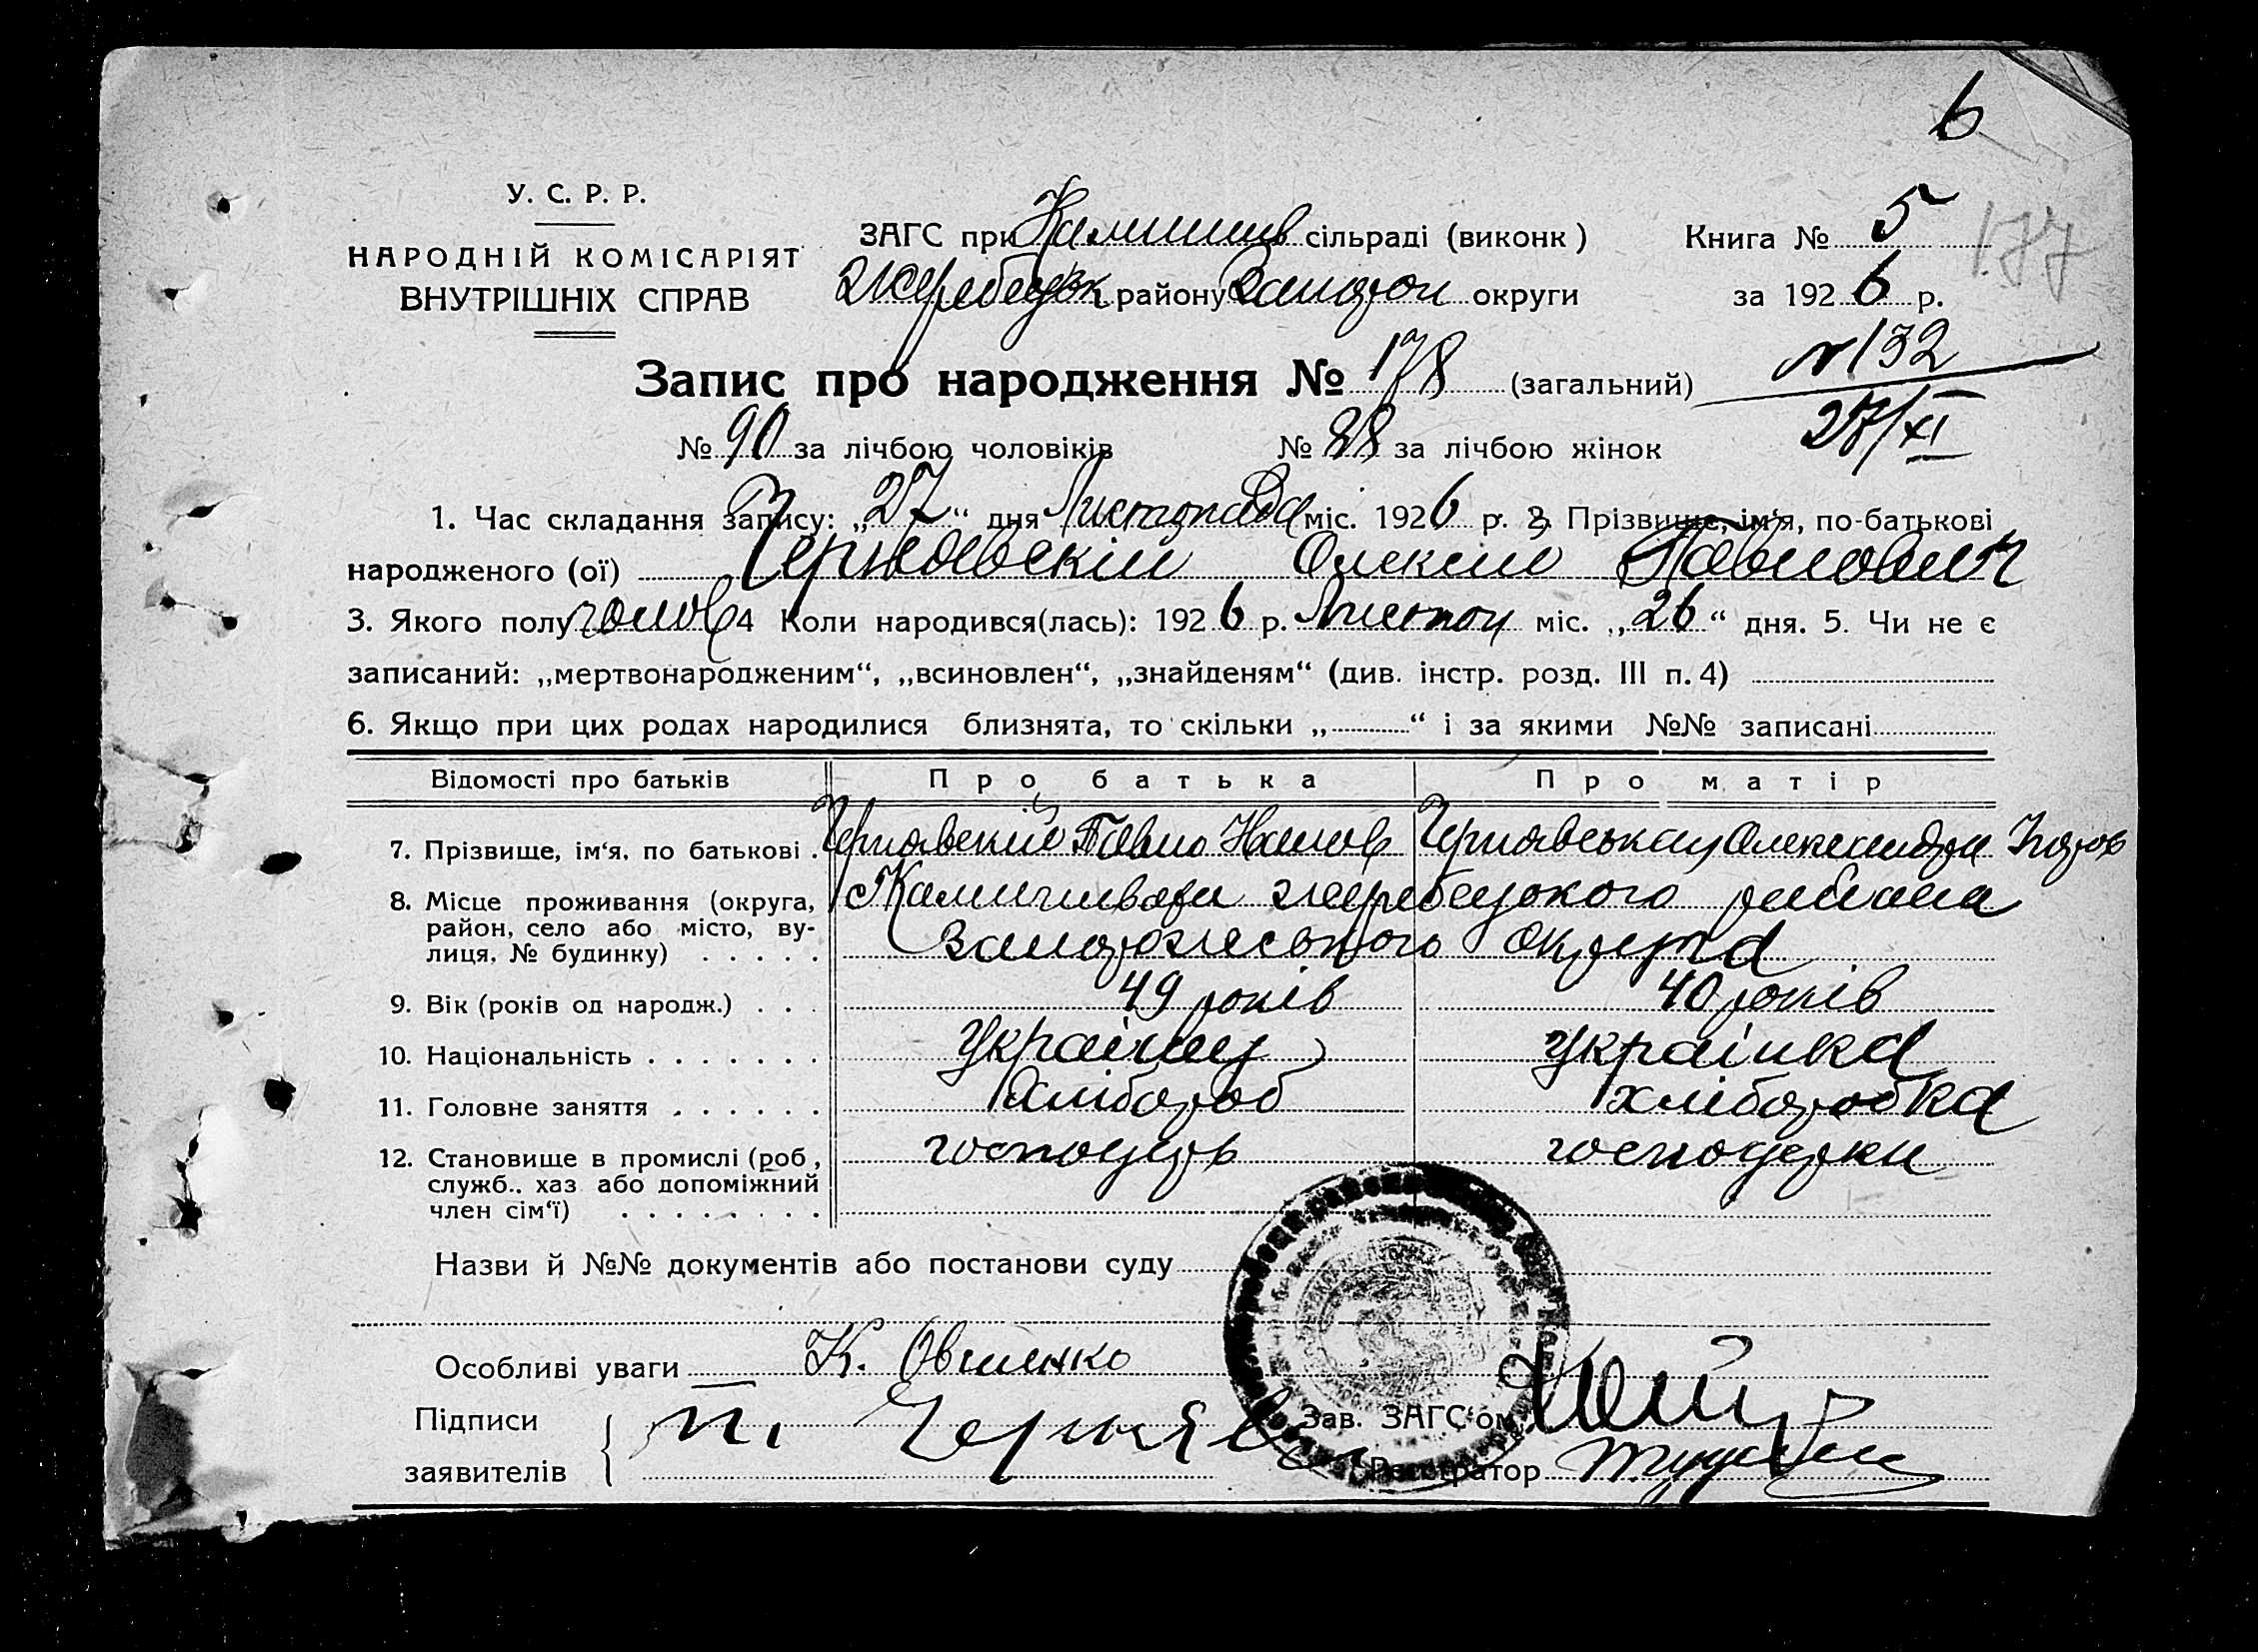 6
У. С. Р. Р.
НАРОДНІЙ КОМІСАРІЯТ
ВНУТРІШНІХ СПРАВ
ЗАГС при Камишув сільраді (виконк )
Жеребецьк району Запорож округи
Книга № 5
177
за 1926 р.
Запис про народження № 178 (загальний)
№ 132
27/XI
№ 90 за лічбою чоловіків № 88 за лічбою жінок
1. Час складання запису: „27“ дня Листопада міс. 1926 р. 2. Прізвище, ім‘я, по-батькові
народженого (ої) Чернявскій Олексій Павлович
3. Якого полу чолов 4 Коли народився(лась): 1926 р. Листоп міс. „26“ дня. 5. Чи не є
записаний: „мертвонародженим“, „всиновлен“, „знайденям“ (див. інстр. розд. III п. 4)
6. Якщо при цих родах народилися близнята, то скільки „ “ і за якими №№ записані
Відомості про батьків Про батька Про матір
7. Прізвище, ім‘я, по батькові Чернявский Павло Чернявська Олександра
8. Місце проживання (округа,
район, село або місто, ву-
лиця, № будинку)
Жеребецького району
Запорожського округа
9. Вік (років од народж.) 49 років 40 років
10. Національність Українец Українка
11. Головне заняття Хлібороб хліборобка
12. Становище в промислі (роб,
служб., хаз або допоміжний
член сім‘ї)
господарь господарка
Назви й №№ документів або постанови суду
Особливі уваги К. Овсиенко
Підписи
заявителів
п. Черняв
Зав. ЗАГС‘ом
Реєстратор